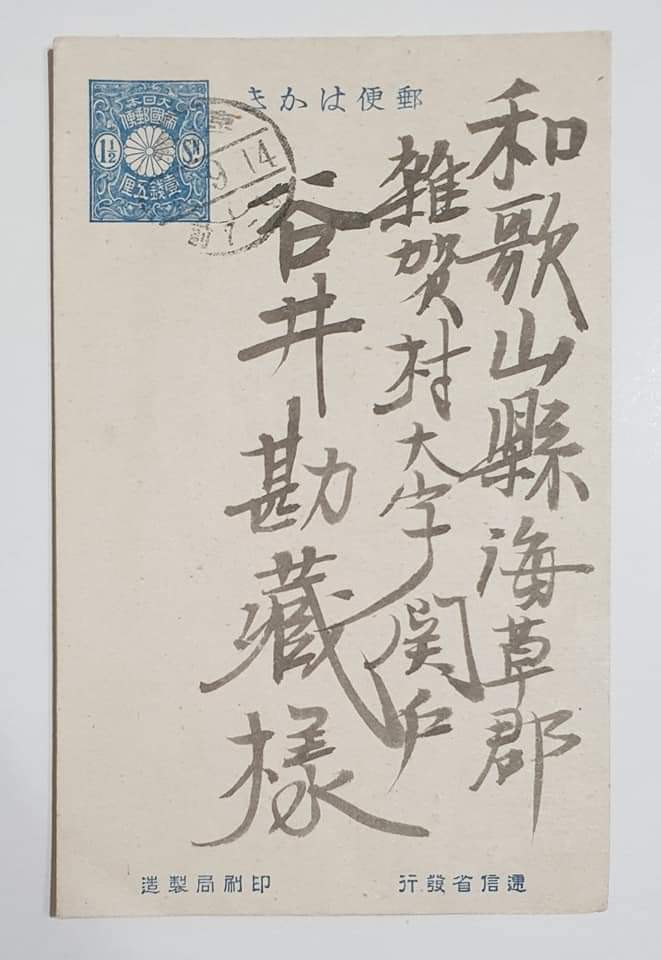 郵便はかき
大日本
帝國郵便
1½ Sn.
壹錢五厘
9 14
前
和歌山縣海草郡
雜賀村大字関戸
谷井勘藏様
遞信省發行
印刷局製造